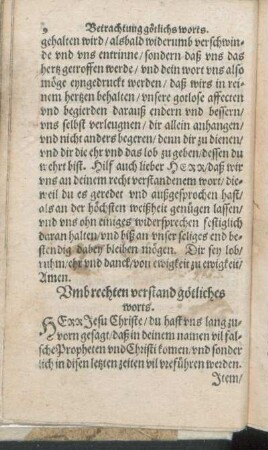 Betrachtung götlichs worts.
gehalten wird/ alsbald widerumb verschwin-
de vnd vns entrinne/ sondern daß vns das
hertz getroffen werde/ vnd dein wort vns also
möge eyngedruckt werden/ daß wirs in rei-
nem hertzen behalten/ vnsere gotlose affecten
vnd begierden darauß endern vnd bessern/
vns selbst verleugnen/ dir allein anhangen/
vnd nicht anders begeren/ denn dir zu dienen/
vnd dir die ehr vnd das lob zu geben/ dessen du
wehrt bist. Hilf auch lieber HERR/ daß wir
vns an deinem recht verstandenem wort/ die-
weil du es geredet vnd außgesprochen hast/
als an der höchsten weißheit genügen lassen/
vnd vns ohn einiges widersprechen festiglich
daran halten/ vnd biß an vnser seliges end be-
stendig dabey bleiben mögen. Dir sey lob/
ruhm/ ehr vnd danck/ von ewigkeit zu ewigkeit/
Amen.
Vmb rechten verstand götliches
worts.
HERR Jesu Christe/ du hast vns lang zu-
vorn gesagt/ daß in deinem namen vil fal-
sche Propheten vnd Christi komen/ vnd sonder
lich in disen letzten zeiten vil vreführen werden.
Item/